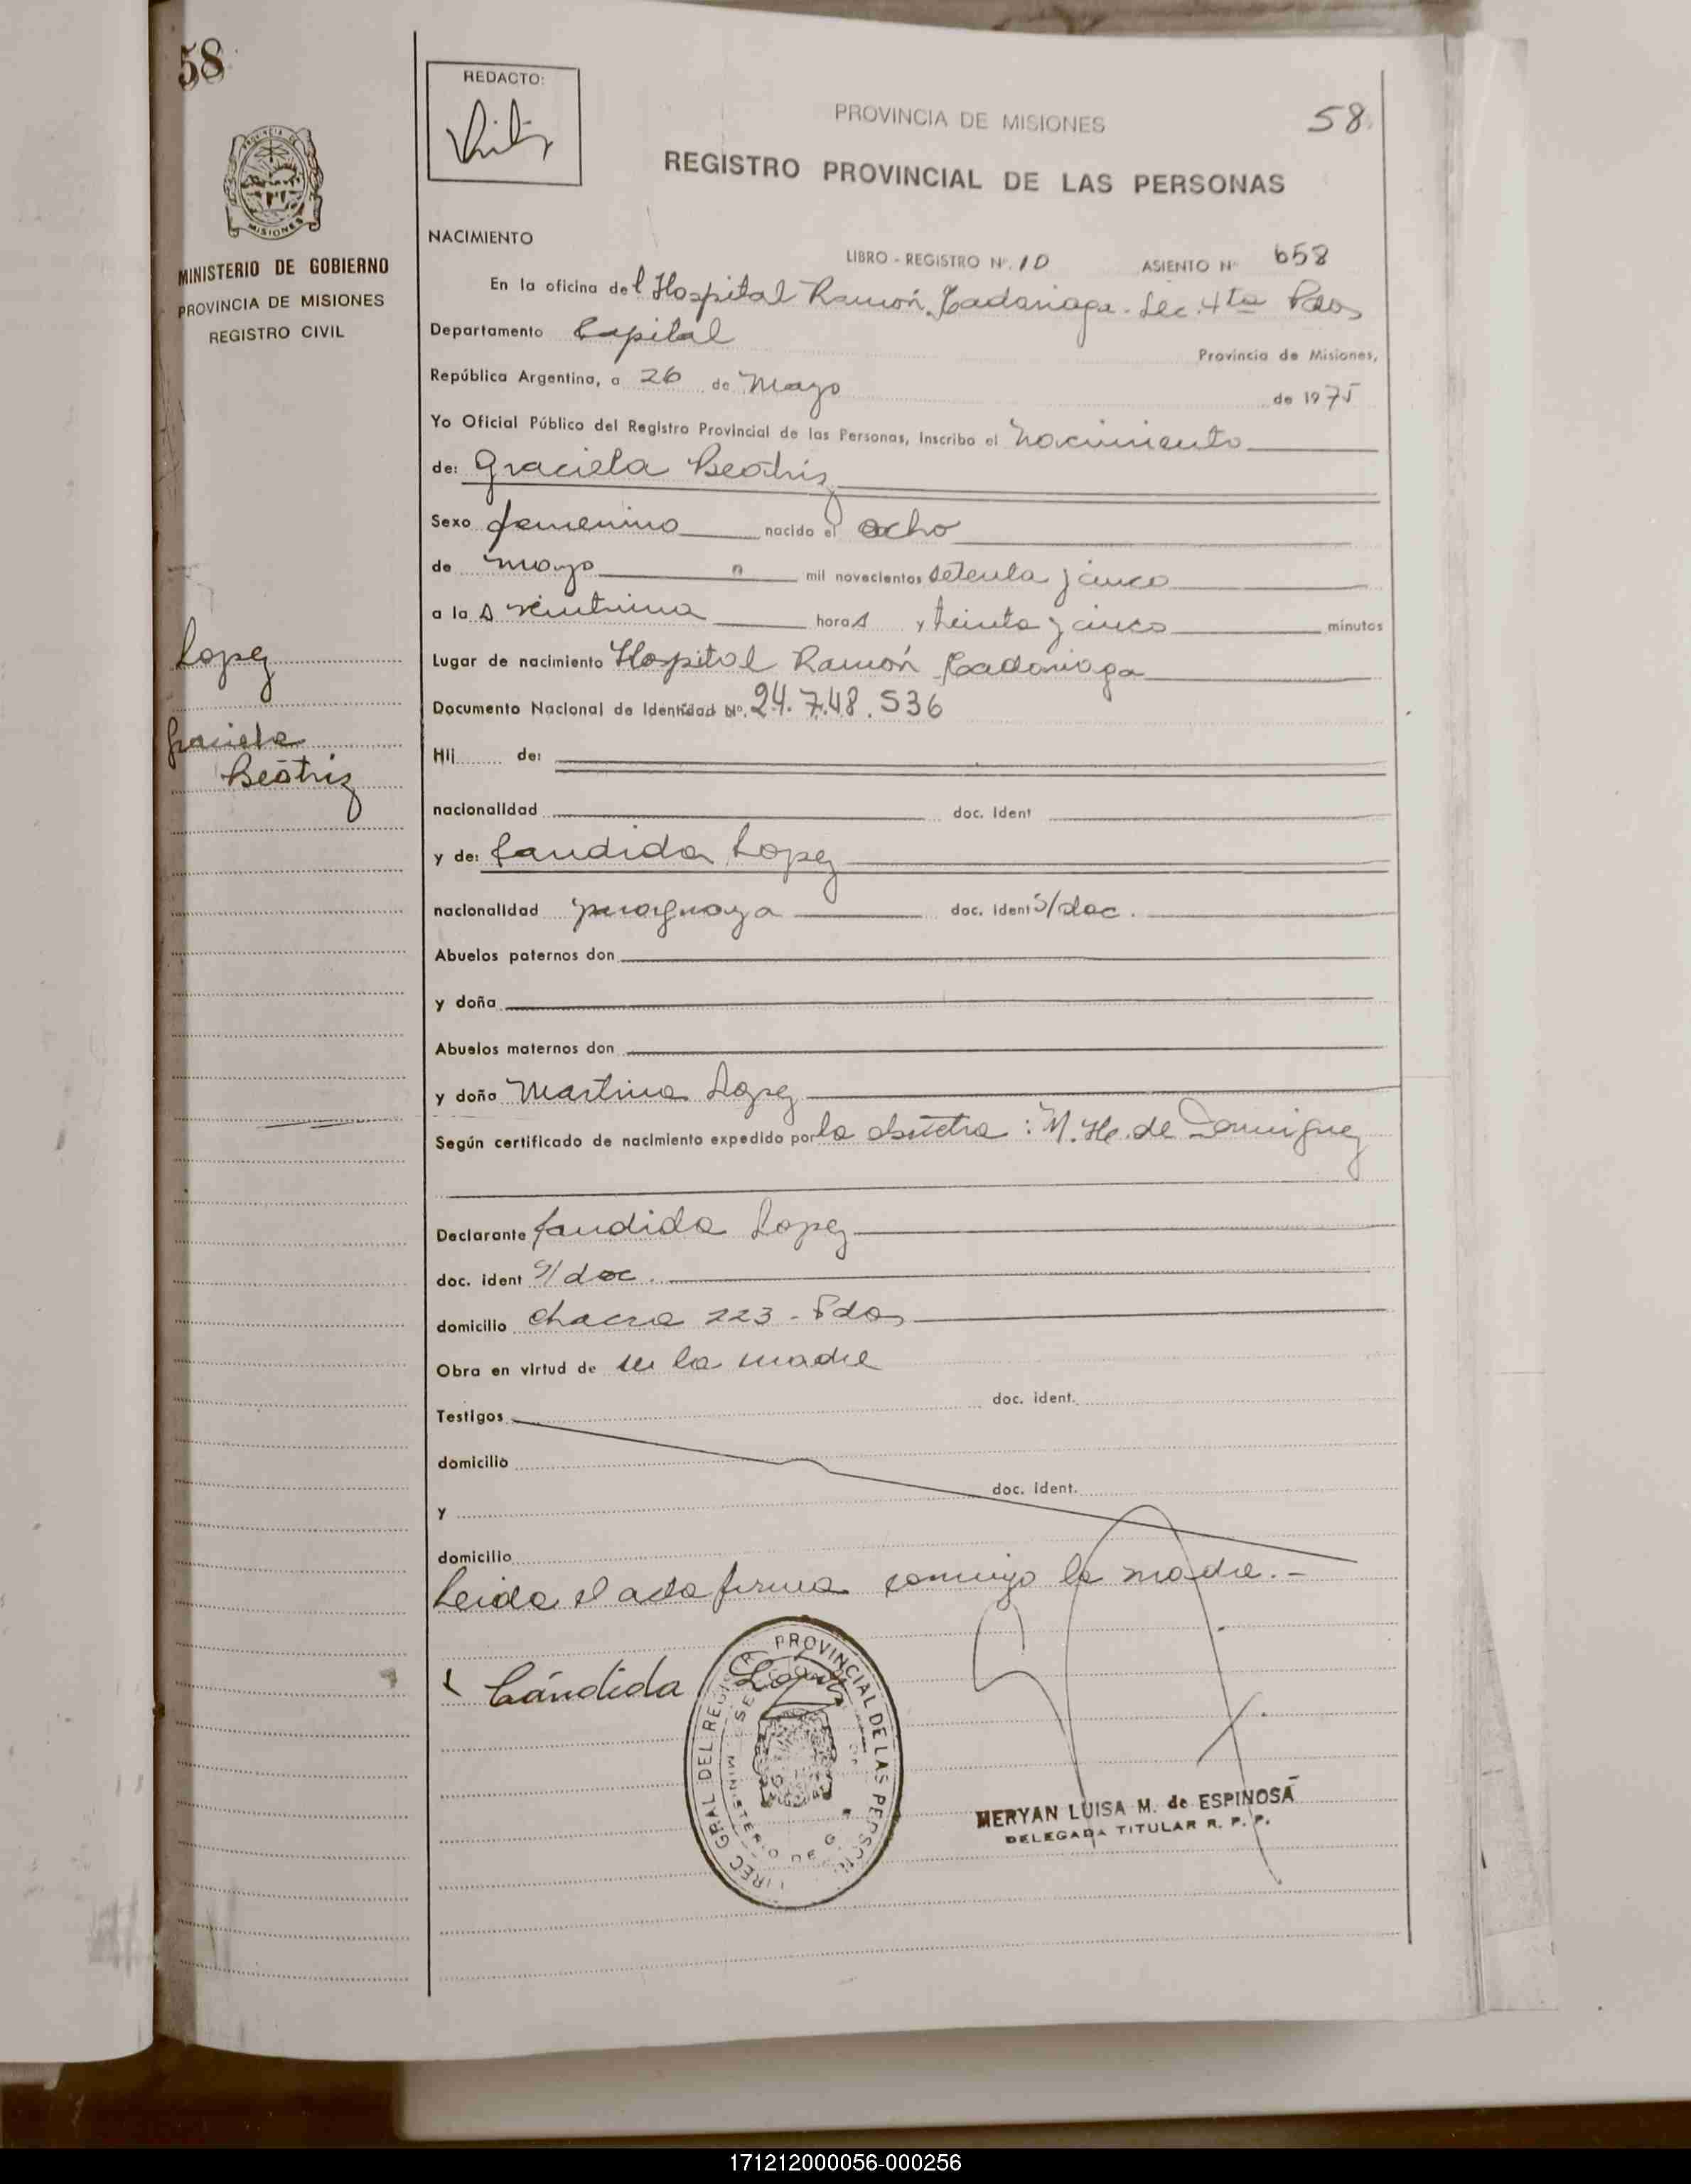 58
REDACTO:
PROVINCIA DE MISIONES
58
REGISTRO PROVINCIAL DE LAS PERSONAS
MISIONES
MINISTERIO DE GOBIERNO
PROVINCIA DE MISIONES
REGISTRO CIVIL
NACIMIENTO
LIBRO - REGISTRO Nº. 10 ASIENTO Nº 658
En la oficina del Hospital Ramón Madariaga - Sec. 4ta Pdas
Departamento Capital
Provincia de Misiones,
República Argentina, a 26 de Mayo de 1975
Yo Oficial Público del Registro Provincial de las Personas, inscribo el nacimiento
de: Graciela Beatriz
Sexo femenino nacido el ocho
de mayo mil novecientos setenta y cinco
a la s veintiuna hora s y treinta y cinco minutos
Lopez
Lugar de nacimiento Hospital Ramón Madariaga
Documento Nacional de Identidad Nº. 24.748.536
Graciela
Beatriz
Hij de:
nacionalidad doc. ident
y de: Candida Lopez
nacionalidad paraguaya doc. ident s/doc.
Abuelos paternos don
y doña
Abuelos maternos don
y doña Martina Lopez
Según certificado de nacimiento expedido por la obstetra : M. H. de Dominguez
Declarante Candida Lopez
doc. ident s/doc.
domicilio chacra 223 - Pdas
Obra en virtud de ser la madre
Testigos doc. ident.
domicilio
y doc. ident.
domicilio
Leida el acta firma conmigo la madre.-
Cándida López
DIREC GRAL DEL REGISTR PROVINCIAL DE LAS PERSON
MINISTERIO DE G
MERYAN LUISA M. de ESPINOSA
DELEGADA TITULAR R. P. P.
171212000056-000256